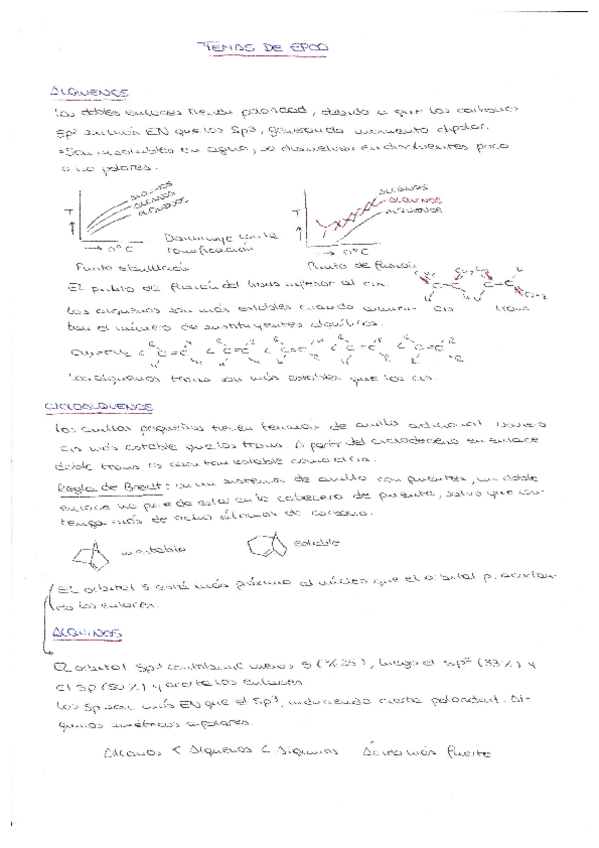 TEMAS DE EPOO
ALQUENOS
Los dobles enlaces tienen polaridad, debido a que los carbonos
Sp² son más EN que los Sp³, generando momento dipolar.
• Son insolubles en agua, se disuelven en disolventes poco
o no polares.
ALQUINOS
ALCANOS
ALQUENOS
T
→ nº C
Disminuye con la
ramificación
Punto ebullición
ALCANOS
ALQUINOS
ALQUENOS
T
→ nº C
Punto de fusión
El punto de fusión del trans inferior al cis.
cis
trans
Los alquenos son más estables cuando aumen-
tan el número de sustituyentes alquílicos.
Los alquenos trans son más estables que los cis.
CICLOALQUENOS
Los anillos pequeños tienen tensión de anillo adicional isómero
cis más estable que los trans. A partir del ciclodeceno un enlace
doble trans es casi tan estable como el cis.
Regla de Bredt: en un sistema de anillo con puentes, un doble
enlace no puede estar en la cabecera de puente, salvo que con-
tenga más de ocho átomos de carbono.
inestable
estable
El orbital S está más próximo al núcleo que el orbital p, acortan-
do los enlaces.
ALQUINOS
El orbital Sp³ contribuye menos S (%25), luego el sp² (33%) y
el Sp (50%) y acorta los enlaces
Los Sp son más EN que el Sp³, induciendo cierta polaridad. Al-
quinos simétricos apolares.
Alcanos < Alquenos < Alquinos Ácido más fuerte